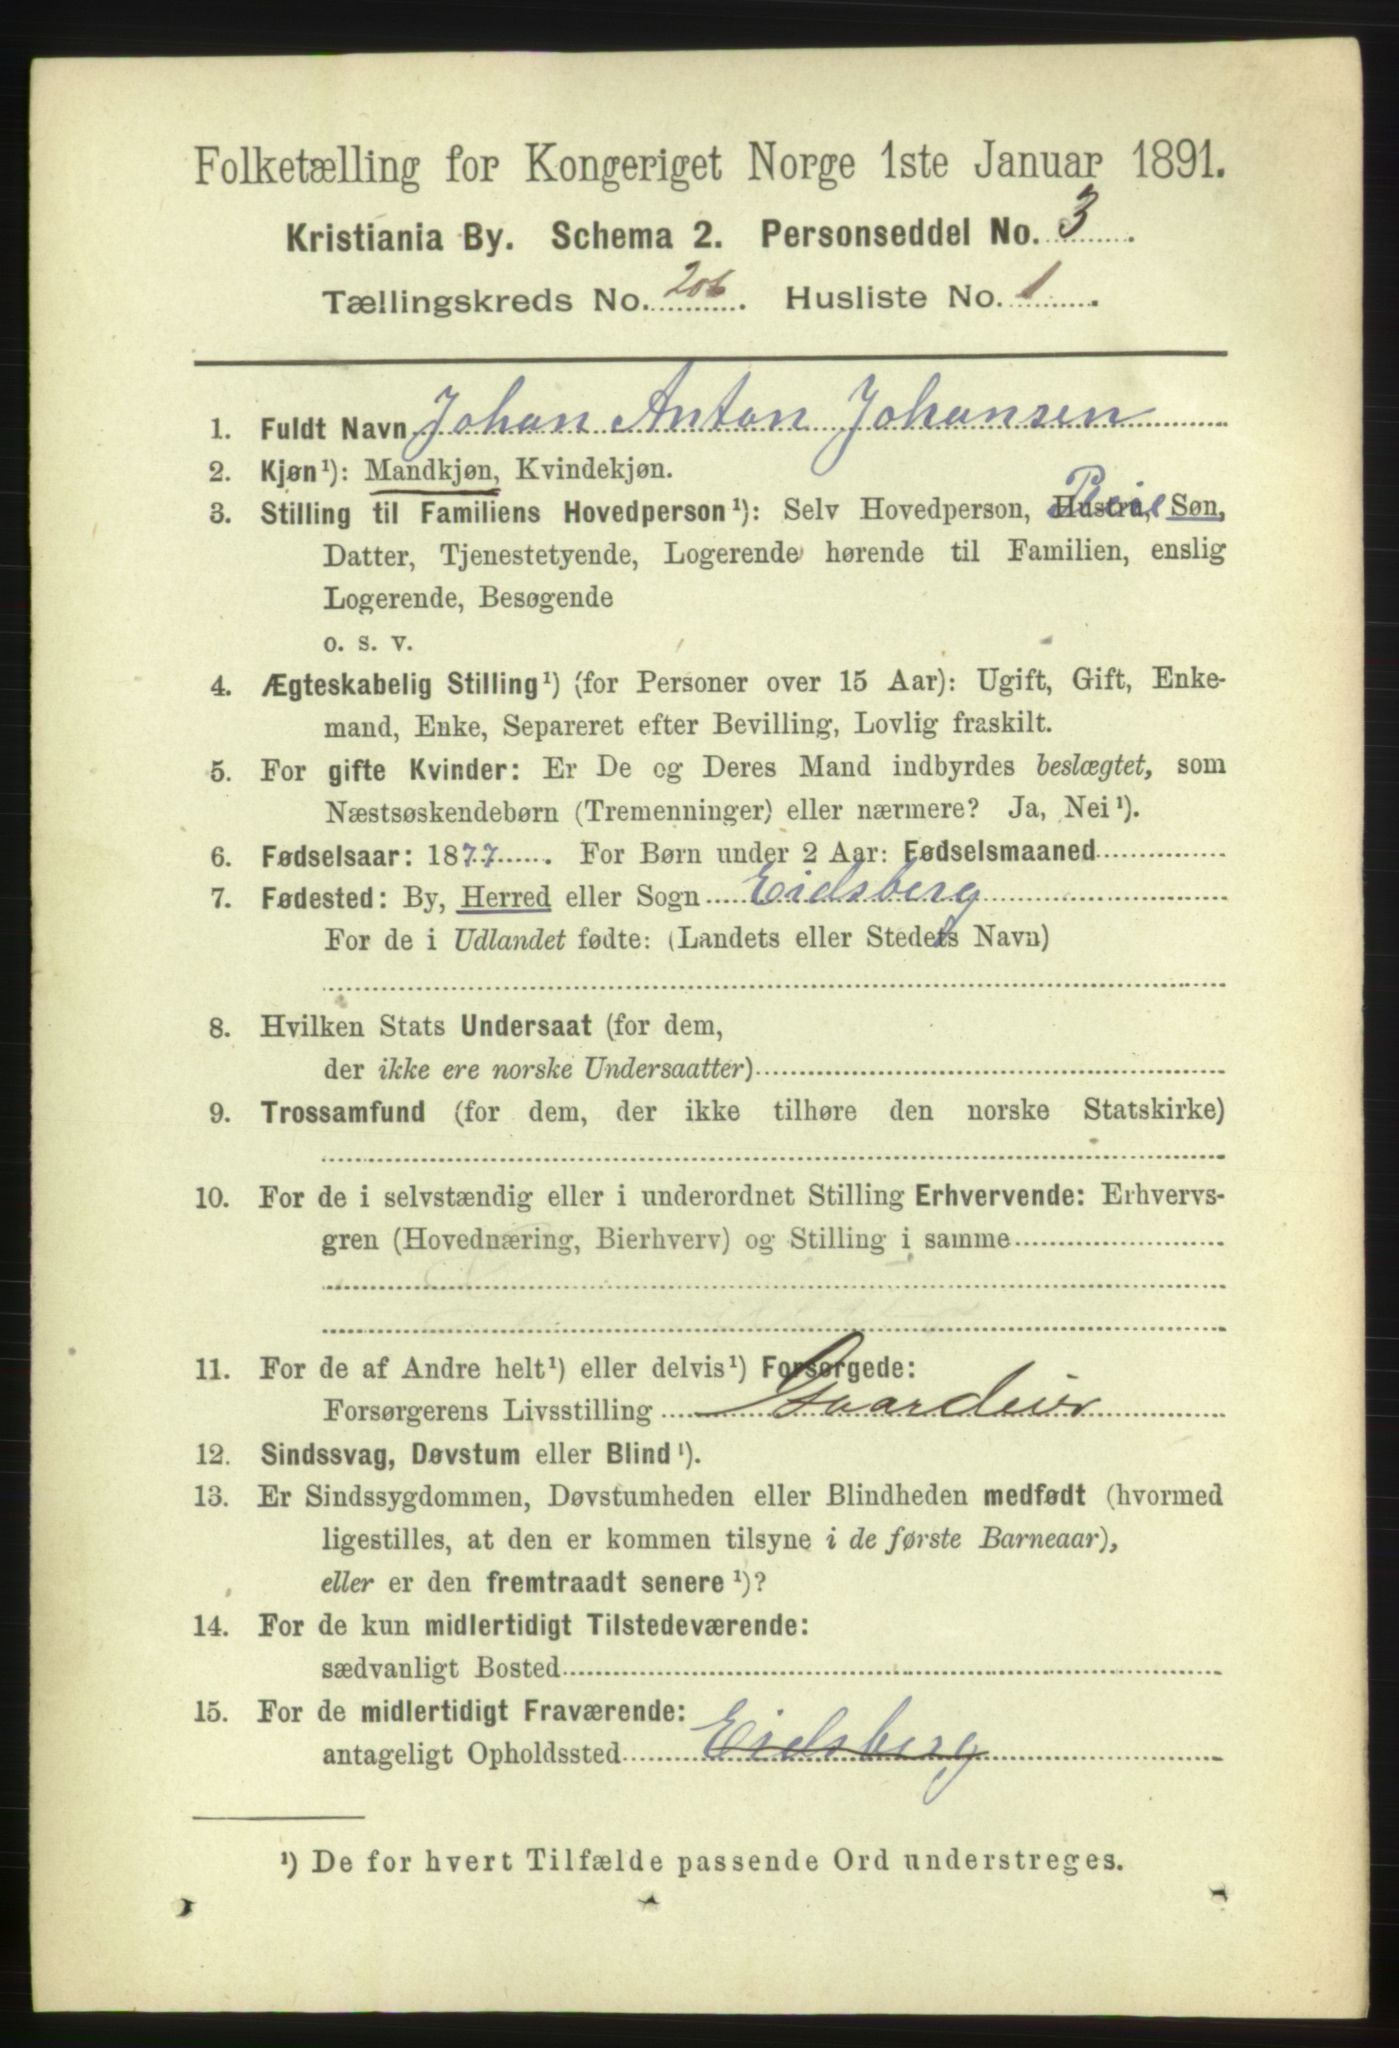 Folketælling for Kongeriget Norge 1ste Januar 1891.
Kristiania By. Schema 2. Personseddel No. 3.
Tællingskreds No. 206. Husliste No. 1.
1. Fuldt Navn Johan Anton Johansen
2. Kjøn¹): Mandkjøn, Kvindekjøn.
3. Stilling til Familiens Hovedperson¹): Selv Hovedperson, Hustru, Pleie Søn,
Datter, Tjenestetyende, Logerende hørende til Familien, enslig
Logerende, Besøgende
o. s. v.
4. Ægteskabelig Stilling¹) (for Personer over 15 Aar): Ugift, Gift, Enke-
mand, Enke, Separeret efter Bevilling, Lovlig fraskilt.
5. For gifte Kvinder: Er De og Deres Mand indbyrdes beslægtet, som
Næstsøskendebørn (Tremenninger) eller nærmere? Ja, Nei¹).
6. Fødselsaar: 1877. For Børn under 2 Aar: Fødselsmaaned
7. Fødested: By, Herred eller Sogn Eidsberg
For de i Udlandet fødte: (Landets eller Stedets Navn)
8. Hvilken Stats Undersaat (for dem,
der ikke ere norske Undersaatter)
9. Trossamfund (for dem, der ikke tilhøre den norske Statskirke)
10. For de i selvstændig eller i underordnet Stilling Erhvervende: Erhvervs-
gren (Hovednæring, Bierhverv) og Stilling i samme
11. For de af Andre helt¹) eller delvis¹) Forsørgede:
Forsørgerens Livsstilling Gaardeier
12. Sindssvag, Døvstum eller Blind¹).
13. Er Sindssygdommen, Døvstumheden eller Blindheden medfødt (hvormed
ligestilles, at den er kommen tilsyne i de første Barneaar),
eller er den fremtraadt senere¹)?
14. For de kun midlertidigt Tilstedeværende:
sædvanligt Bosted
15. For de midlertidigt Fraværende:
antageligt Opholdssted Eidsberg
¹) De for hvert Tilfælde passende Ord understreges.